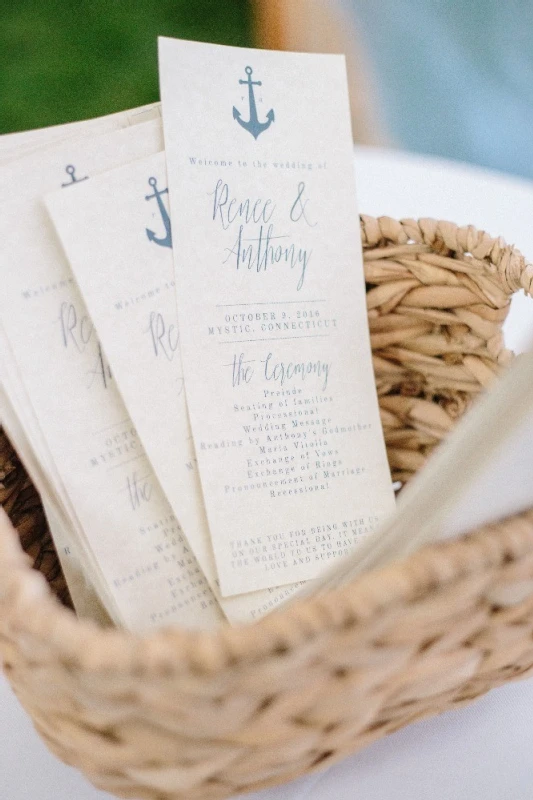 Welcome to the wedding of
Renee &
Anthony
MYSTIC, CONNECTICUT
the Ceremony
Prelude
Seating of families
Processional
Wedding Message
Reading by Anthony's Godmother
Maria Vitello
Exchange of Vows
Exchange of Rings
Pronouncement of Marriage
Recessional
THANK YOU FOR BEING WITH US
ON OUR SPECIAL DAY. IT MEANS
THE WORLD TO US TO HAVE
LOVE AND SUPPORT